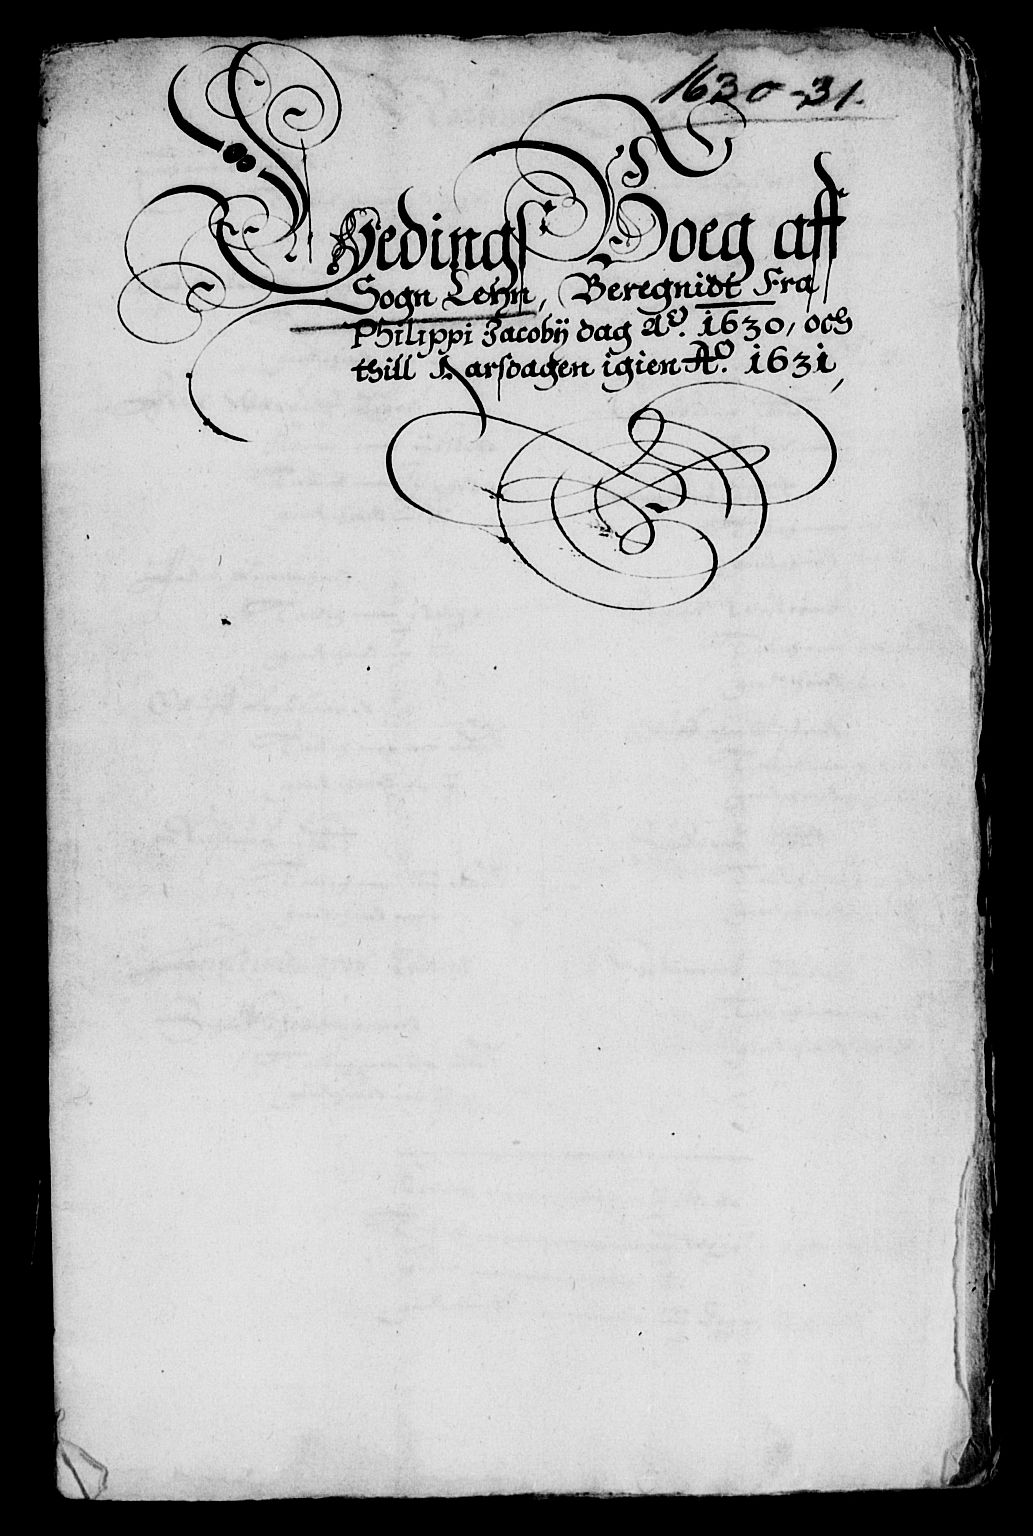 1630-31.
Tredings Boeg aff
Sogn Lehn, Beregnidt Fra
Philippi Jacobÿ dag Aº. 1630, och
thill Aarsdagen igien Aº. 1631,